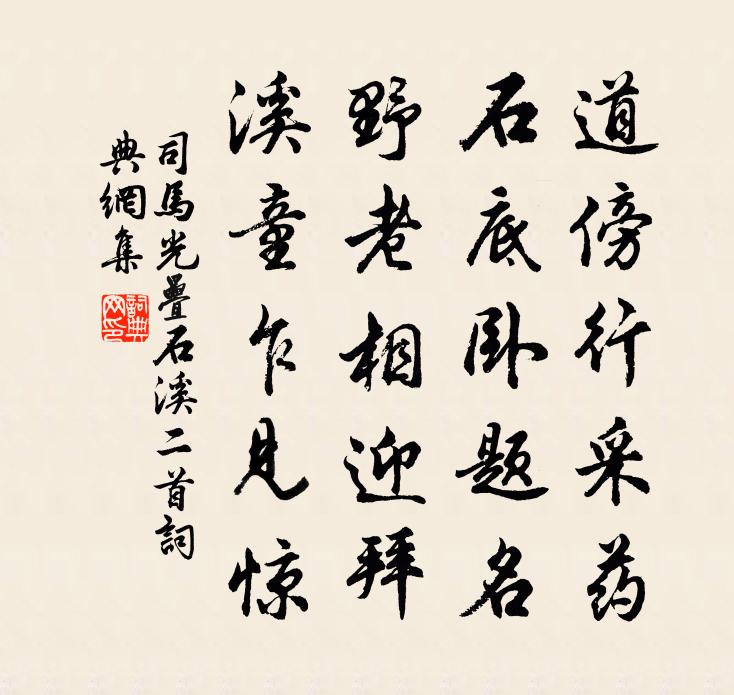 道傍行采药
石底卧题名
野老相迎拜
溪童乍见惊
司馬光疊石溪二首詞
典網集
詞典
网印